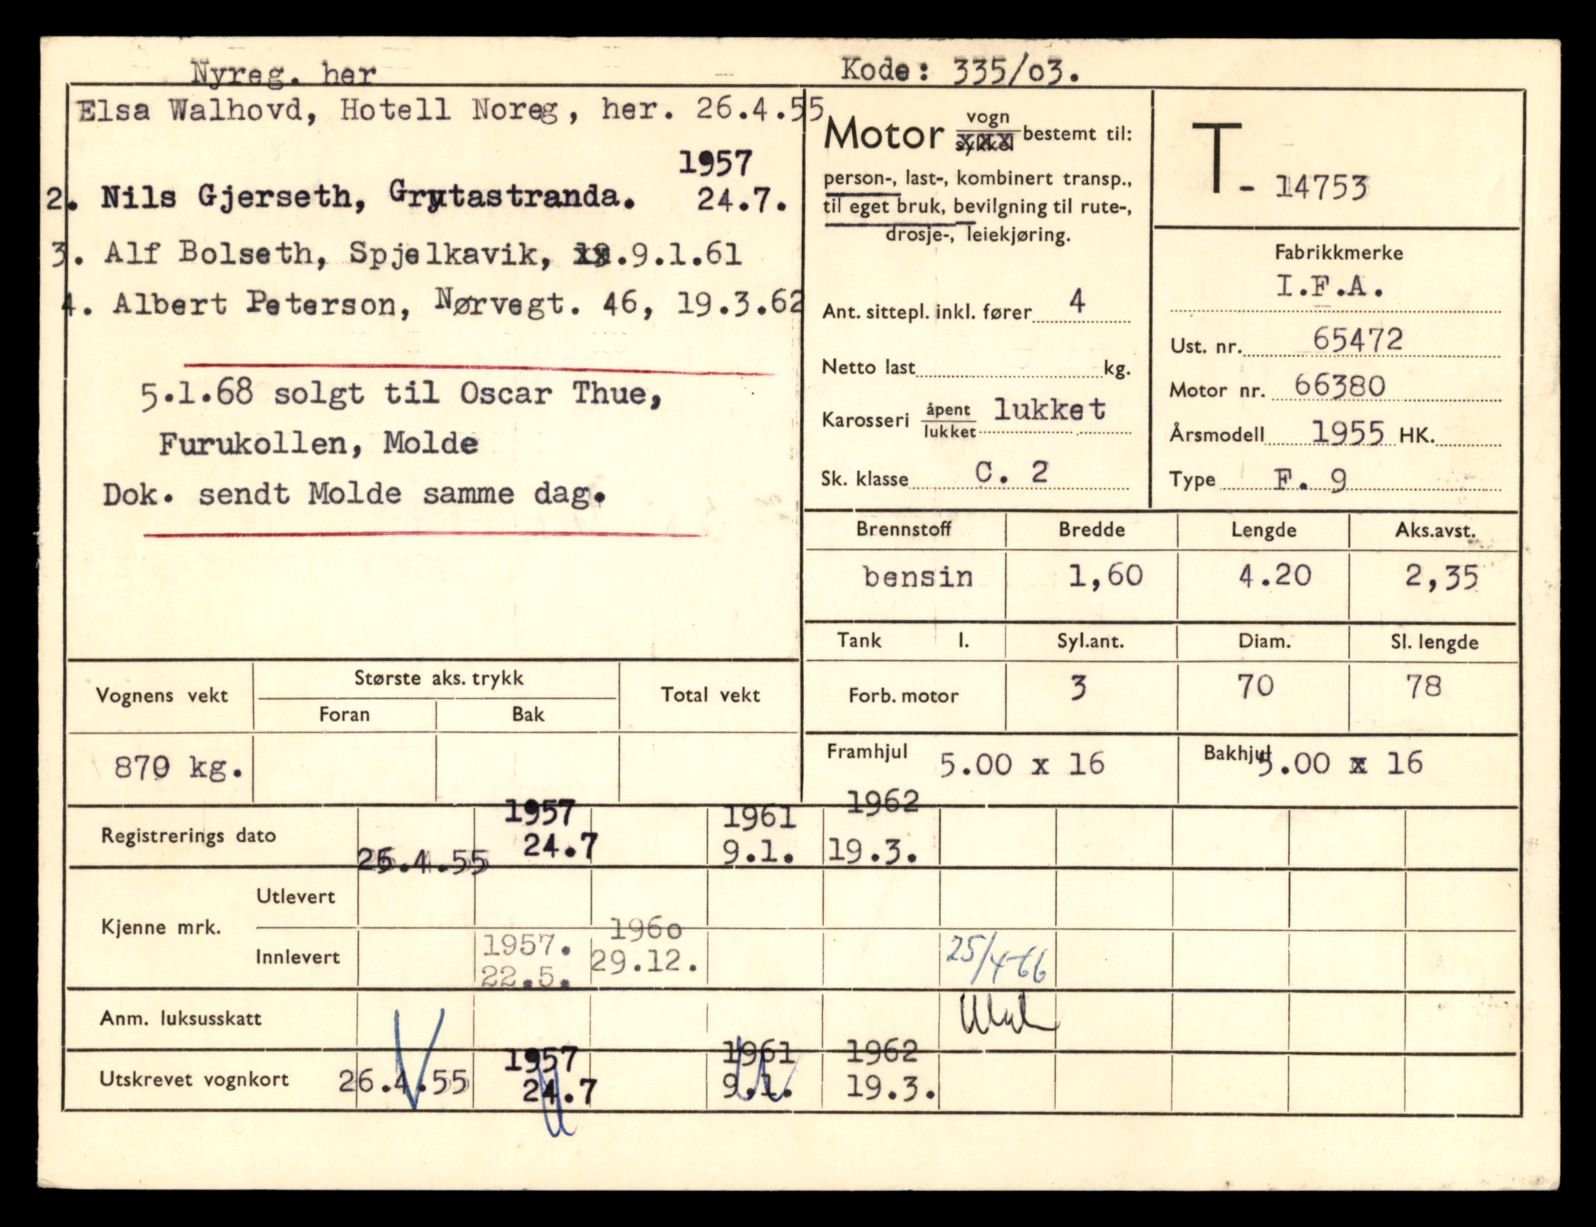 Nyreg. her
Kode: 335/03.
Elsa Walhovd, Hotell Noreg, her. 26.4.55
1957
2. Nils Gjerseth, Grytastranda. 24.7.
3. Alf Bolseth, Spjelkavik, 9.1.61
4. Albert Peterson, Nørvegt. 46, 19.3.62
5.1.68 solgt til Oscar Thue,
Furukollen, Molde
Dok. sendt Molde samme dag.
Motor vogn sykkel bestemt til:
person-, last-, kombinert transp.,
til eget bruk, bevilgning til rute-,
drosje-, leiekjøring.
Ant. sittepl. inkl. fører 4
Netto last kg.
Karosseri åpent lukket lukket
Sk. klasse C. 2
T - 14753
Fabrikkmerke
I.F.A.
Ust. nr. 65472
Motor nr. 66380
Årsmodell 1955 HK.
Type F. 9
Brennstoff Bredde Lengde Aks.avst.
bensin 1,60 4.20 2,35
Tank l. Syl.ant. Diam. Sl. lengde
Forb. motor 3 70 78
Framhjul 5.00 x 16 Bakhjul 5.00 x 16
Vognens vekt Største aks. trykk Total vekt
Foran Bak
870 kg.
1957 1961 1962
Registrerings dato 26.4.55 24.7 9.1. 19.3.
Kjenne mrk.
Utlevert
1957. 1960
Innlevert 22.5. 29.12. 25/4-66
Anm. luksusskatt
1957 1961 1962
Utskrevet vognkort 26.4.55 24.7 9.1. 19.3.